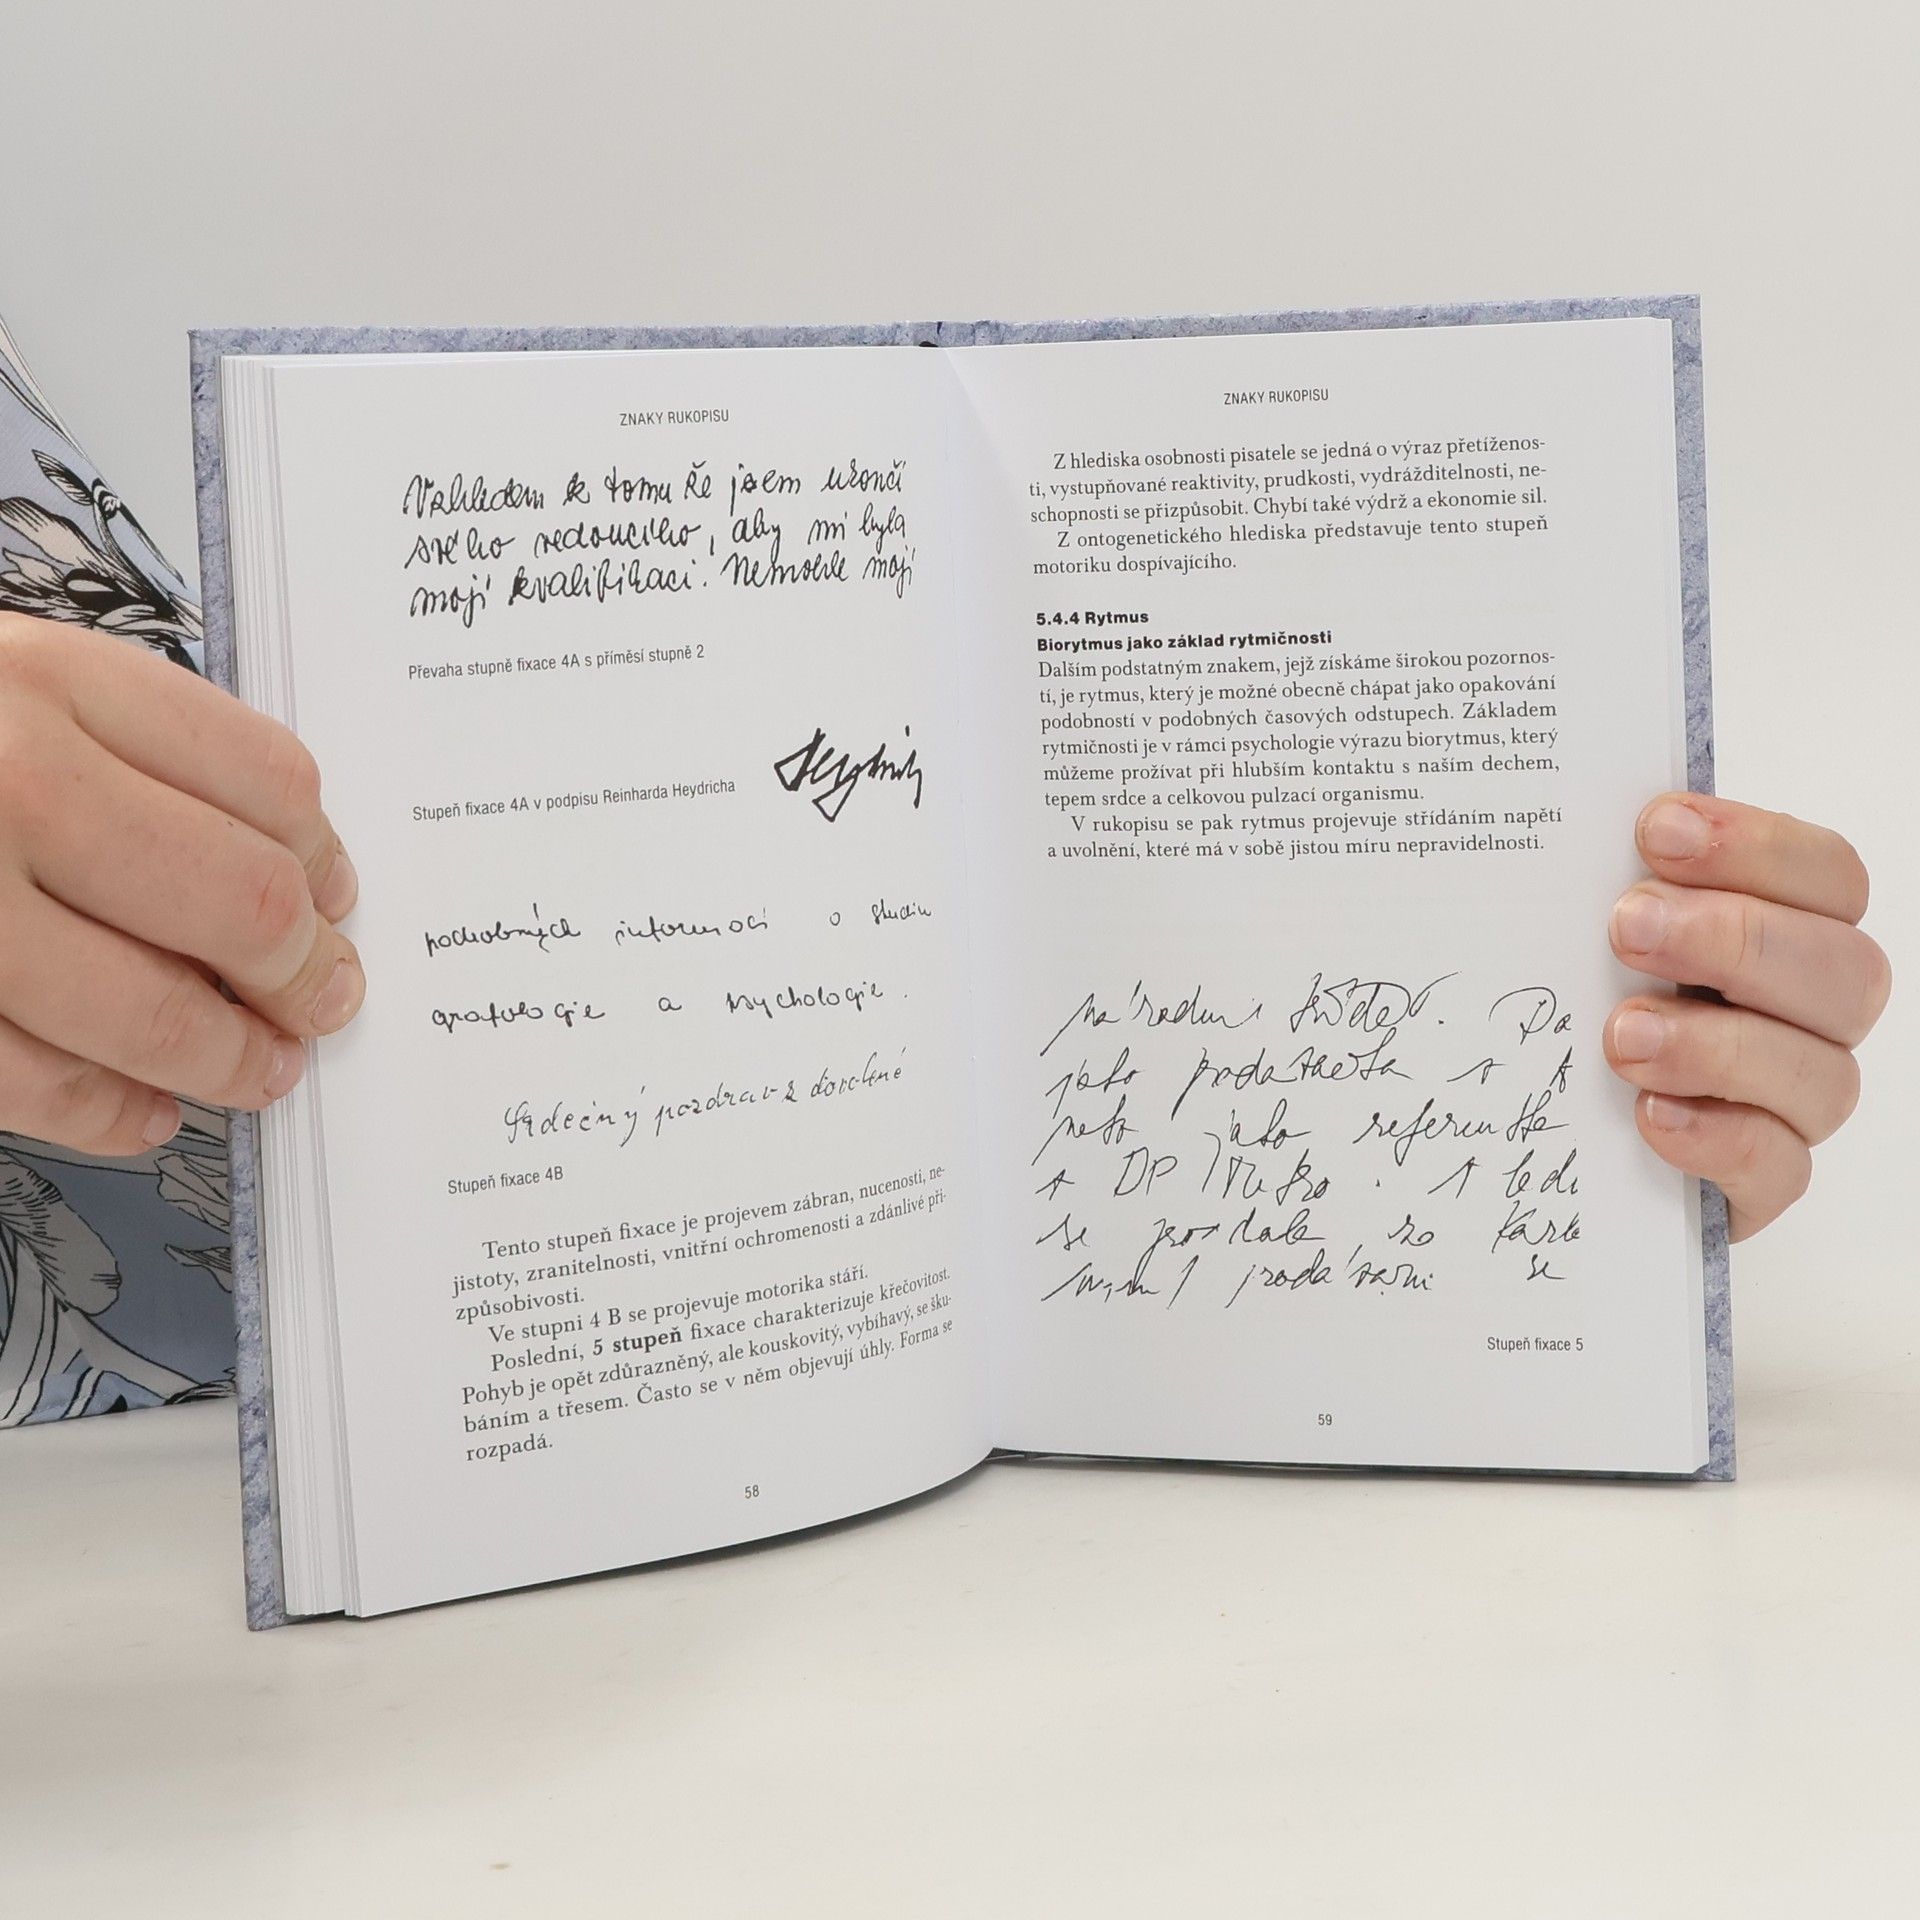 ZNAKY RUKOPISU
Vzhledem k tomu že jsem ukončí
svého vedoucího, aby mi byla
moji kvalifikaci. Nemohle moji
Převaha stupně fixace 4A s příměsí stupně 2
Heydrich
Stupeň fixace 4A v podpisu Reinharda Heydricha
podrobných informací o studiu
grafologie a psychologie.
Srdečný pozdrav z dovolené
Stupeň fixace 4B
Tento stupeň fixace je projevem zábran, nucenosti, ne-
jistoty, zranitelnosti, vnitřní ochromenosti a zdánlivé při-
způsobivosti.
Ve stupni 4 B se projevuje motorika stáří.
Poslední, 5 stupeň fixace charakterizuje křečovitost.
Pohyb je opět zdůrazněný, ale kouskovitý, vybíhavý, se šku-
báním a třesem. Často se v něm objevují úhly. Forma se
rozpadá.
58
ZNAKY RUKOPISU
Z hlediska osobnosti pisatele se jedná o výraz přetíženos-
ti, vystupňované reaktivity, prudkosti, vydrážditelnosti, ne-
schopnosti se přizpůsobit. Chybí také výdrž a ekonomie sil.
Z ontogenetického hlediska představuje tento stupeň
motoriku dospívajícího.
5.4.4 Rytmus
Biorytmus jako základ rytmičnosti
Dalším podstatným znakem, jejž získáme širokou pozornos-
tí, je rytmus, který je možné obecně chápat jako opakování
podobností v podobných časových odstupech. Základem
rytmičnosti je v rámci psychologie výrazu biorytmus, který
můžeme prožívat při hlubším kontaktu s naším dechem,
tepem srdce a celkovou pulzací organismu.
V rukopisu se pak rytmus projevuje střídáním napětí
a uvolnění, které má v sobě jistou míru nepravidelnosti.
národní Do
jako prodavačka
nebo jako referentka
DP
se
se
Stupeň fixace 5
59